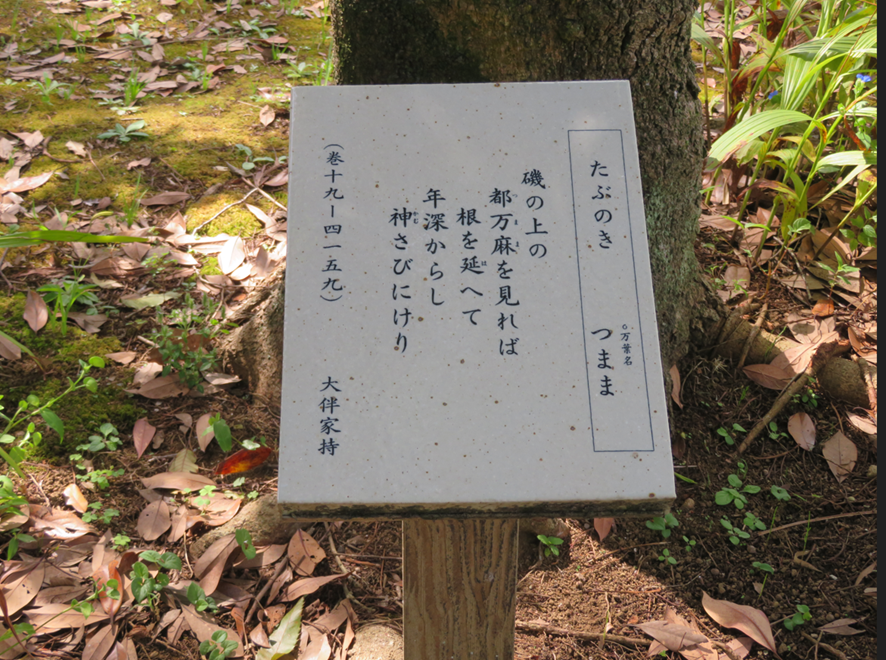 たぶのき
○万葉名
つまま
磯の上の
都万麻を見れば
根を延へて
年深からし
神さびにけり
(巻十九ー四一五九)
大伴家持